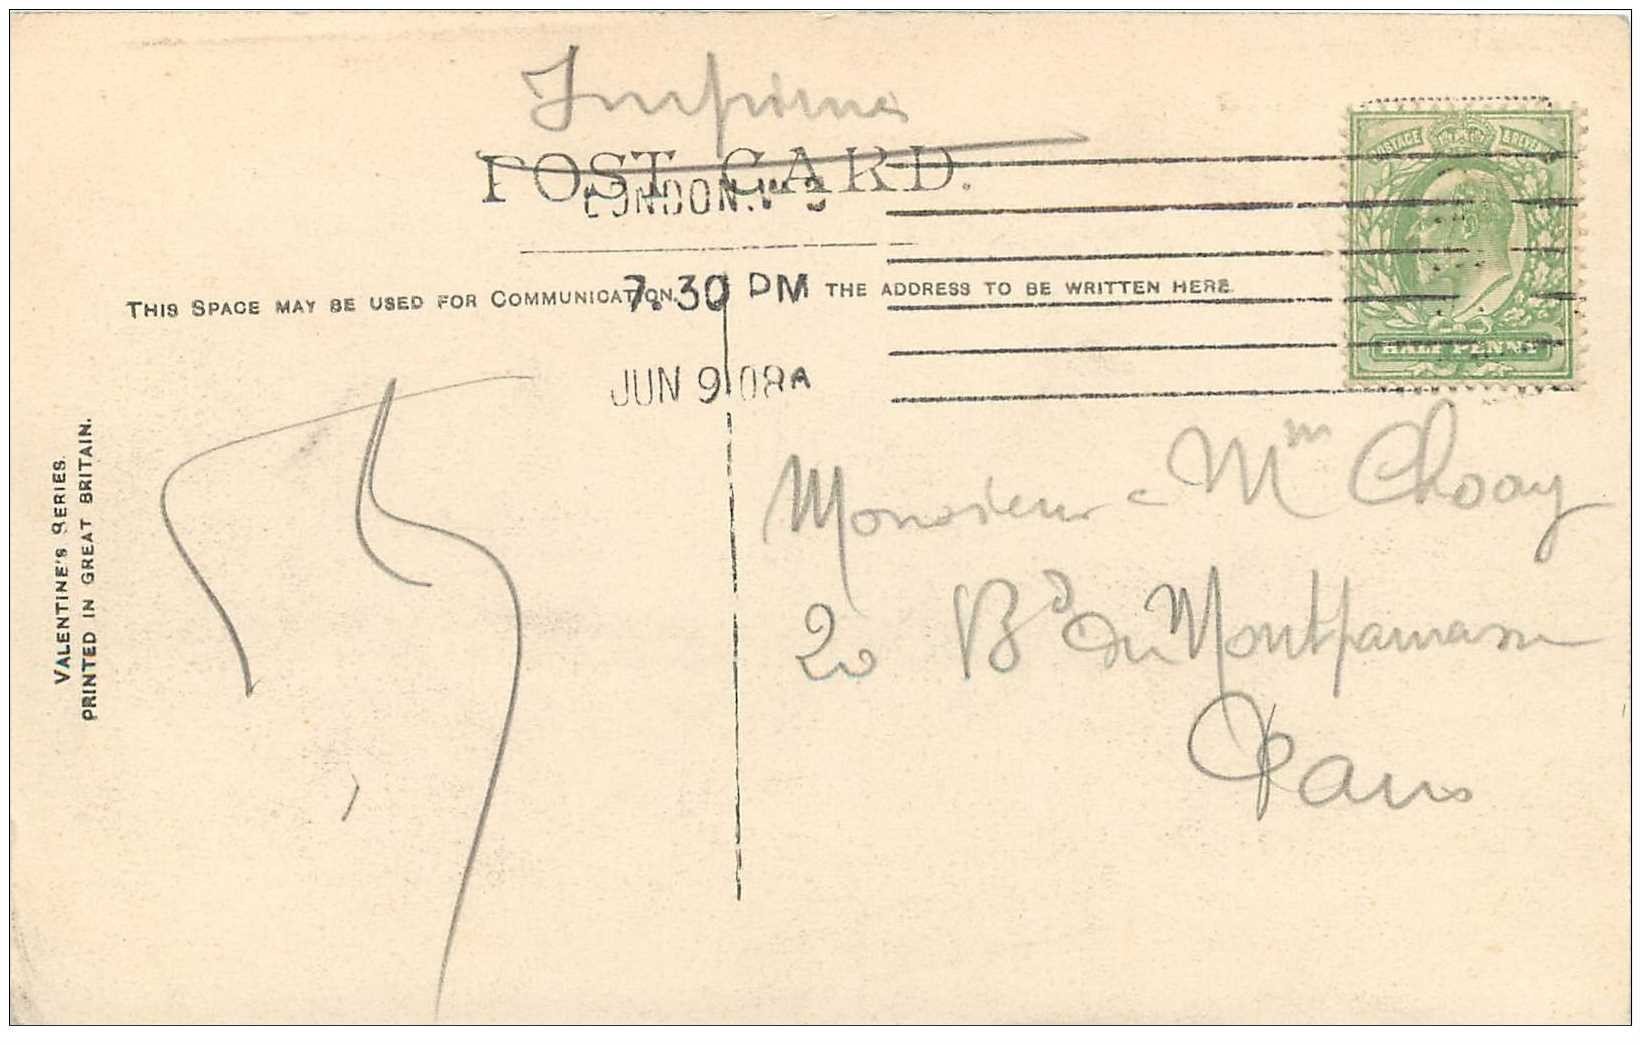 Imprimé
POST CARD.
LONDON.
7.30 PM
JUN 9 08 A
POSTAGE & REVENUE
HALF PENNY
THIS SPACE MAY BE USED FOR COMMUNICATION.
THE ADDRESS TO BE WRITTEN HERE.
VALENTINE'S SERIES
PRINTED IN GREAT BRITAIN.
Monsieur & Mm Choay
20 Bd du Montparnasse
Paris